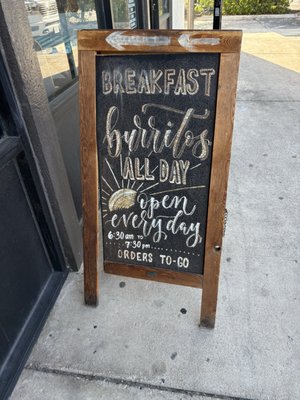 BREAKFAST
burritos
ALL DAY
open
everyday
6:30 AM TO
7:30 PM
ORDERS TO-GO